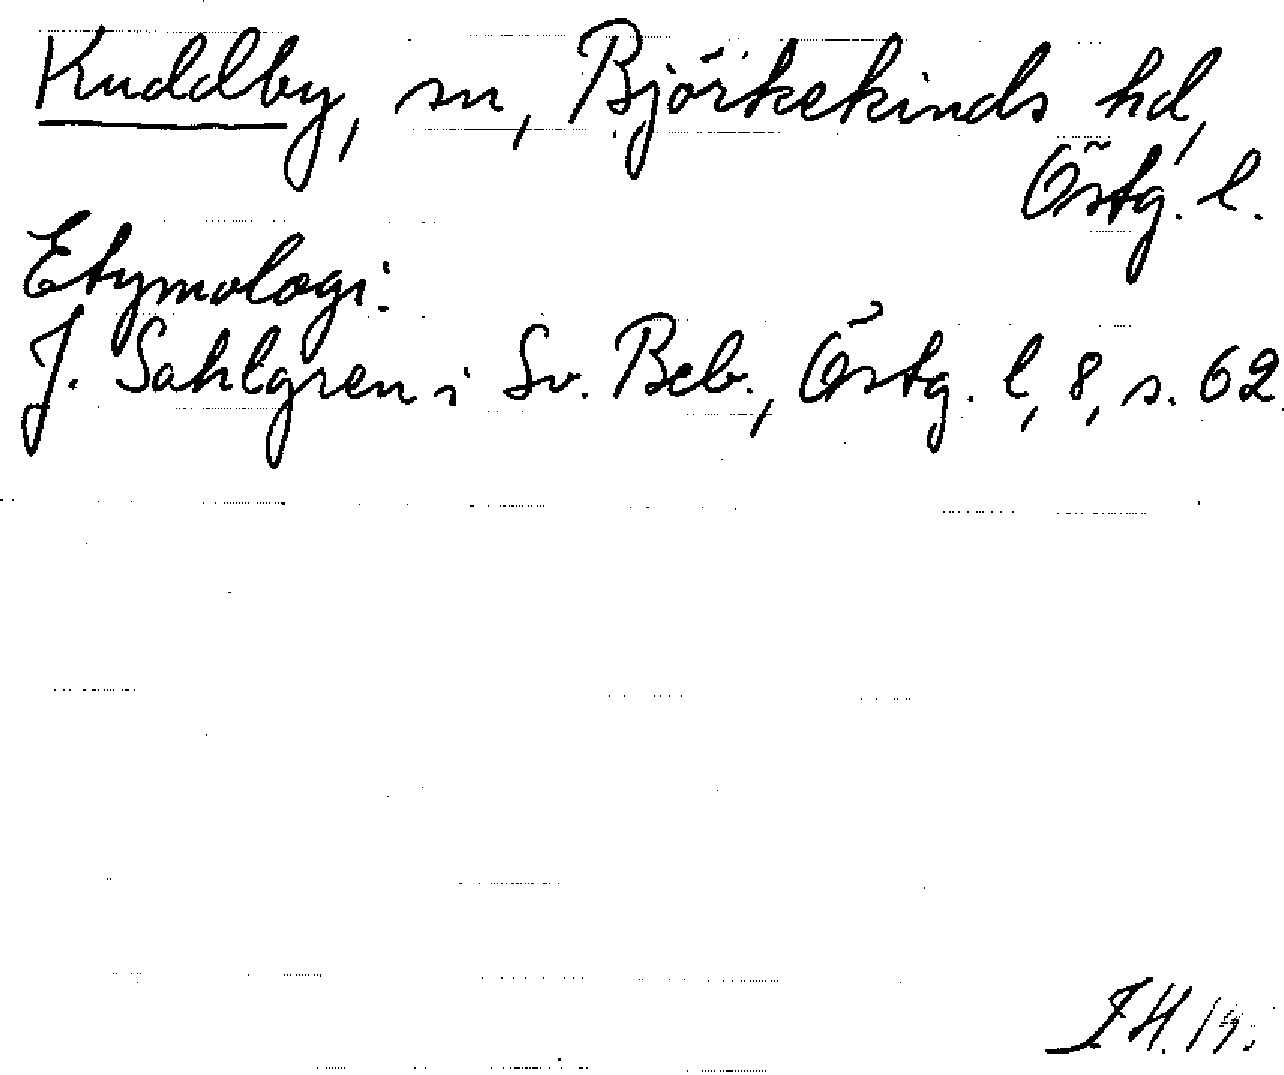 Kuddby, sn, Björkekinds hd,
Östg. l.
Etymologi:
J. Sahlgren i Sv. Beb., Östg. l, 8, s. 62.